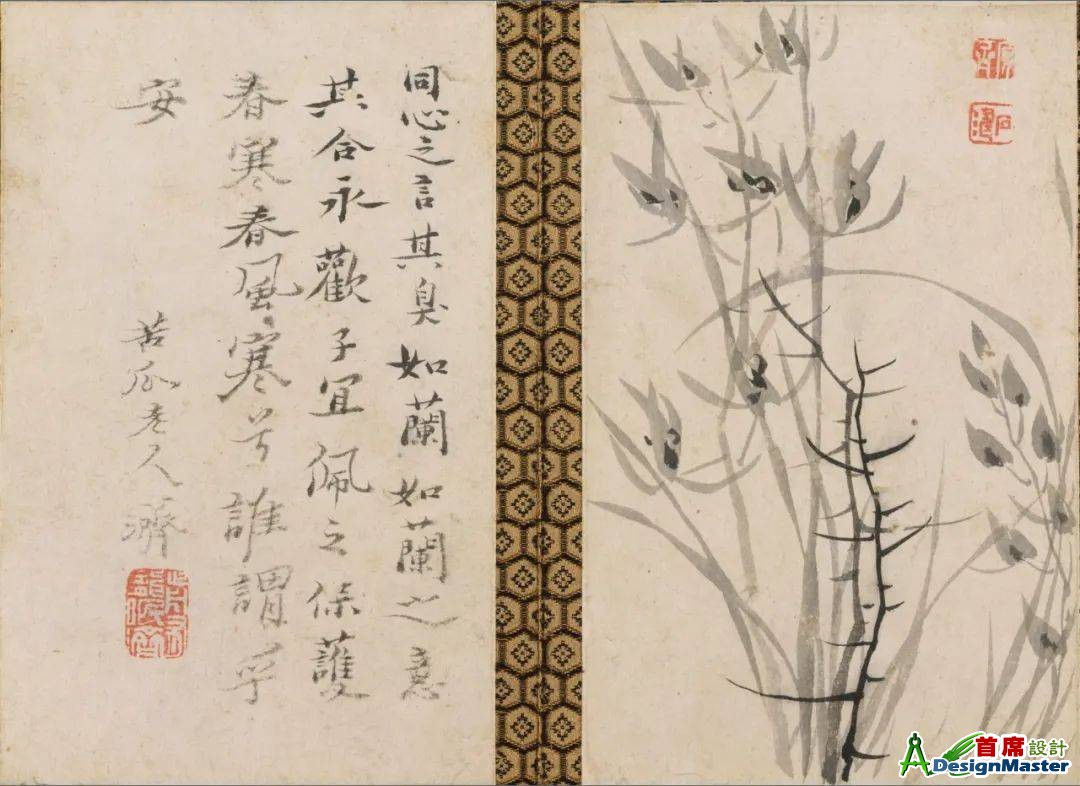 同心之言其臭如蘭如蘭之意
其合永歡子宜佩之保護
春寒春風寒兮誰謂乎
安
苦瓜老人濟
首席設計
DesignMaster